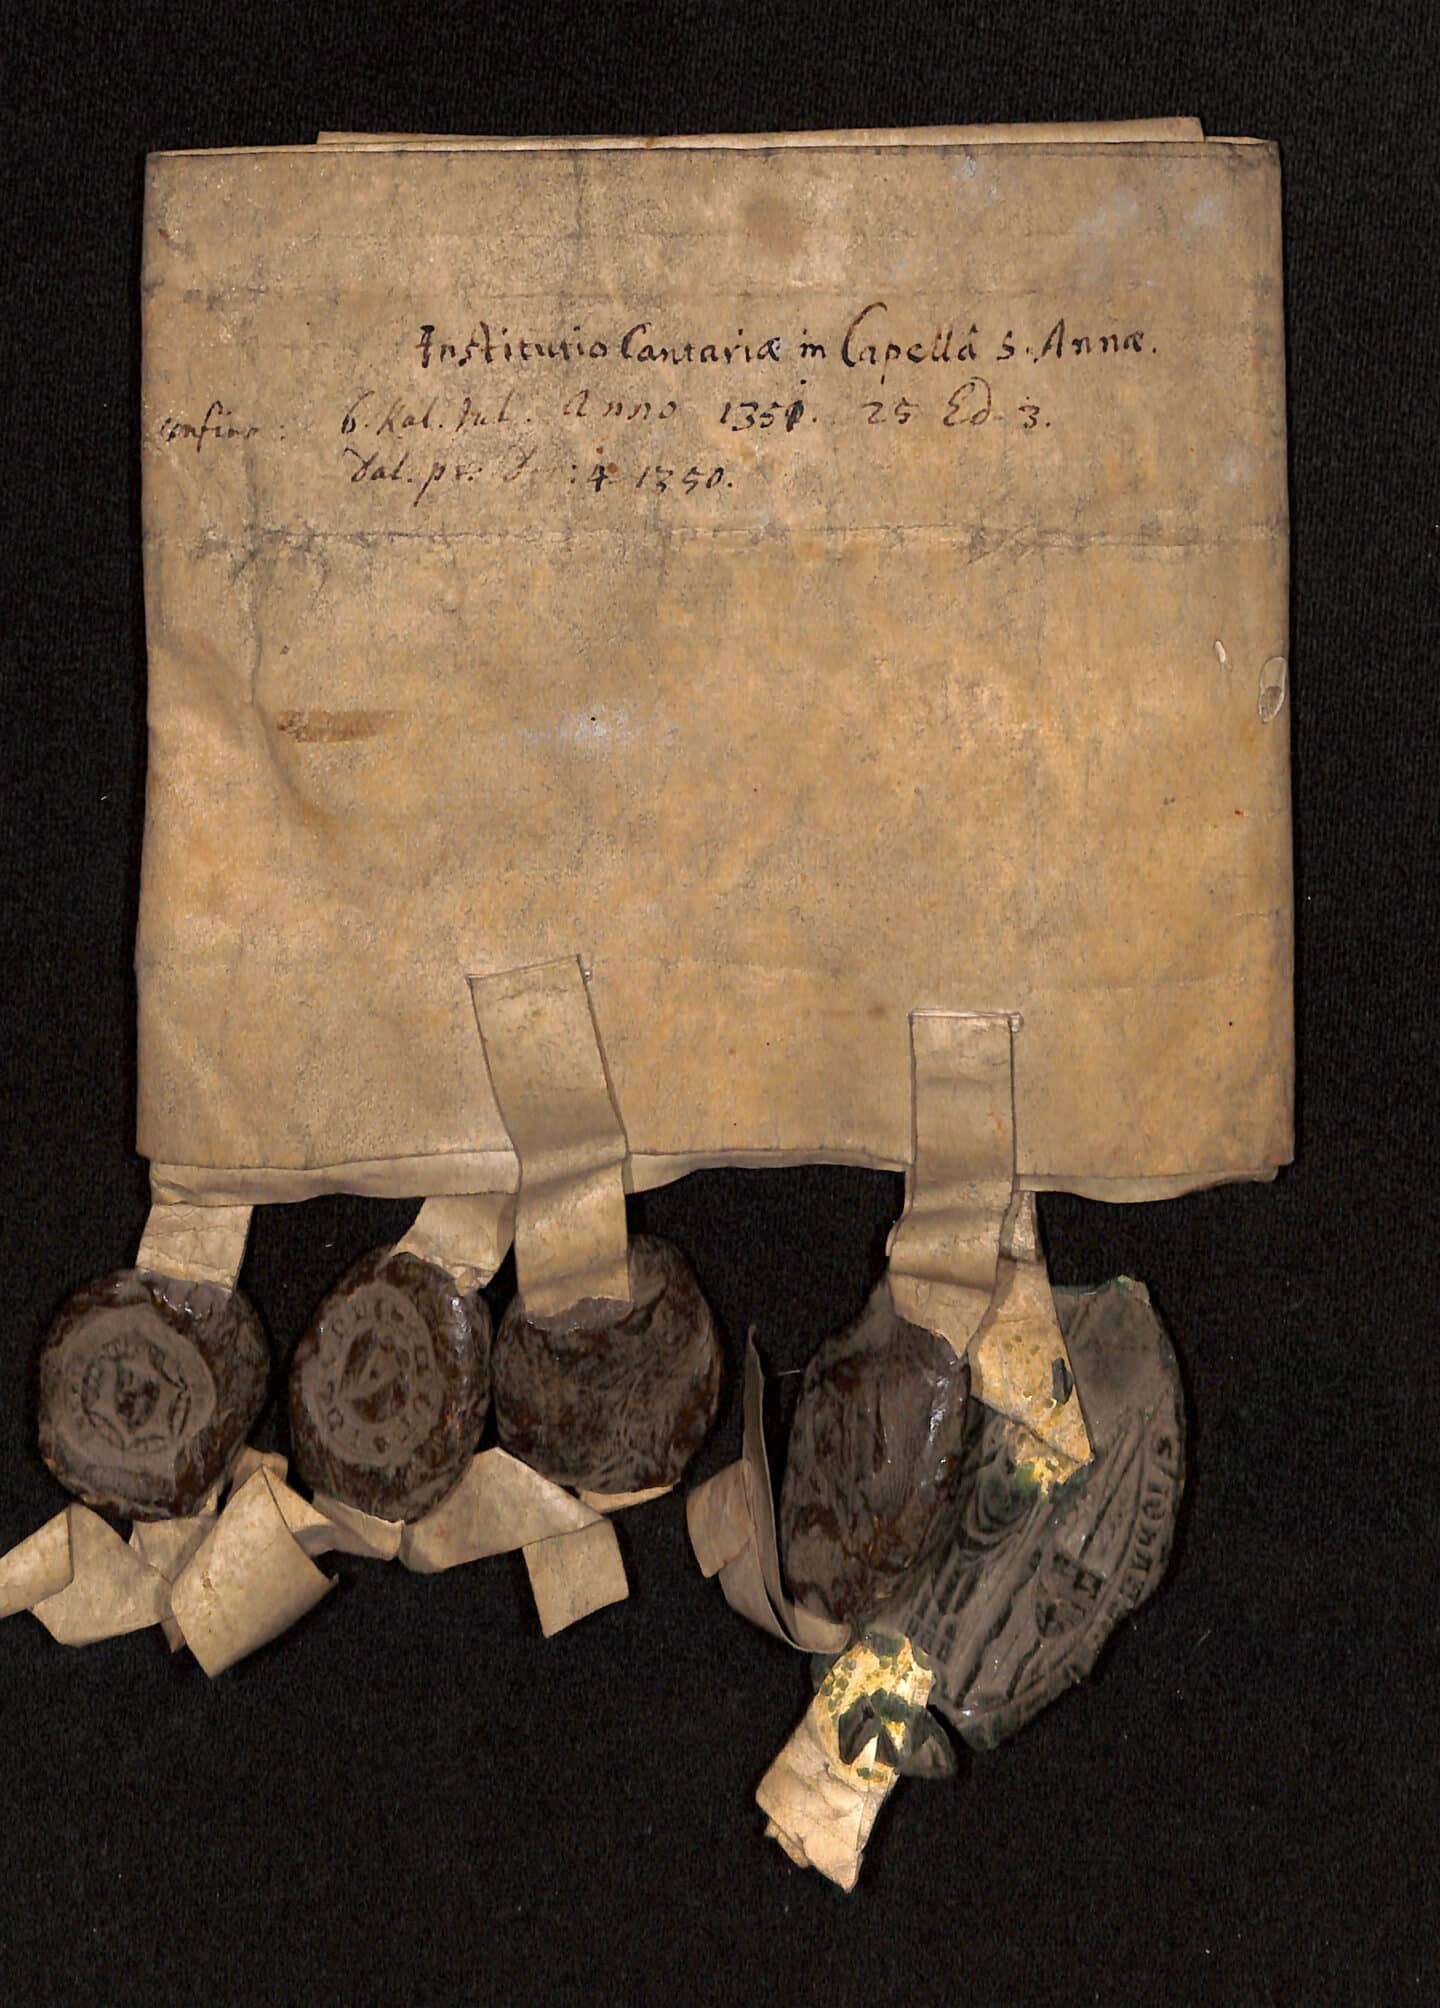 Institutio Cantariæ in Capellâ S. Annæ.
confirm: 6. Kal. Jul. Anno 1351. 25 Ed. 3.
Dat. pr. 4 1350.